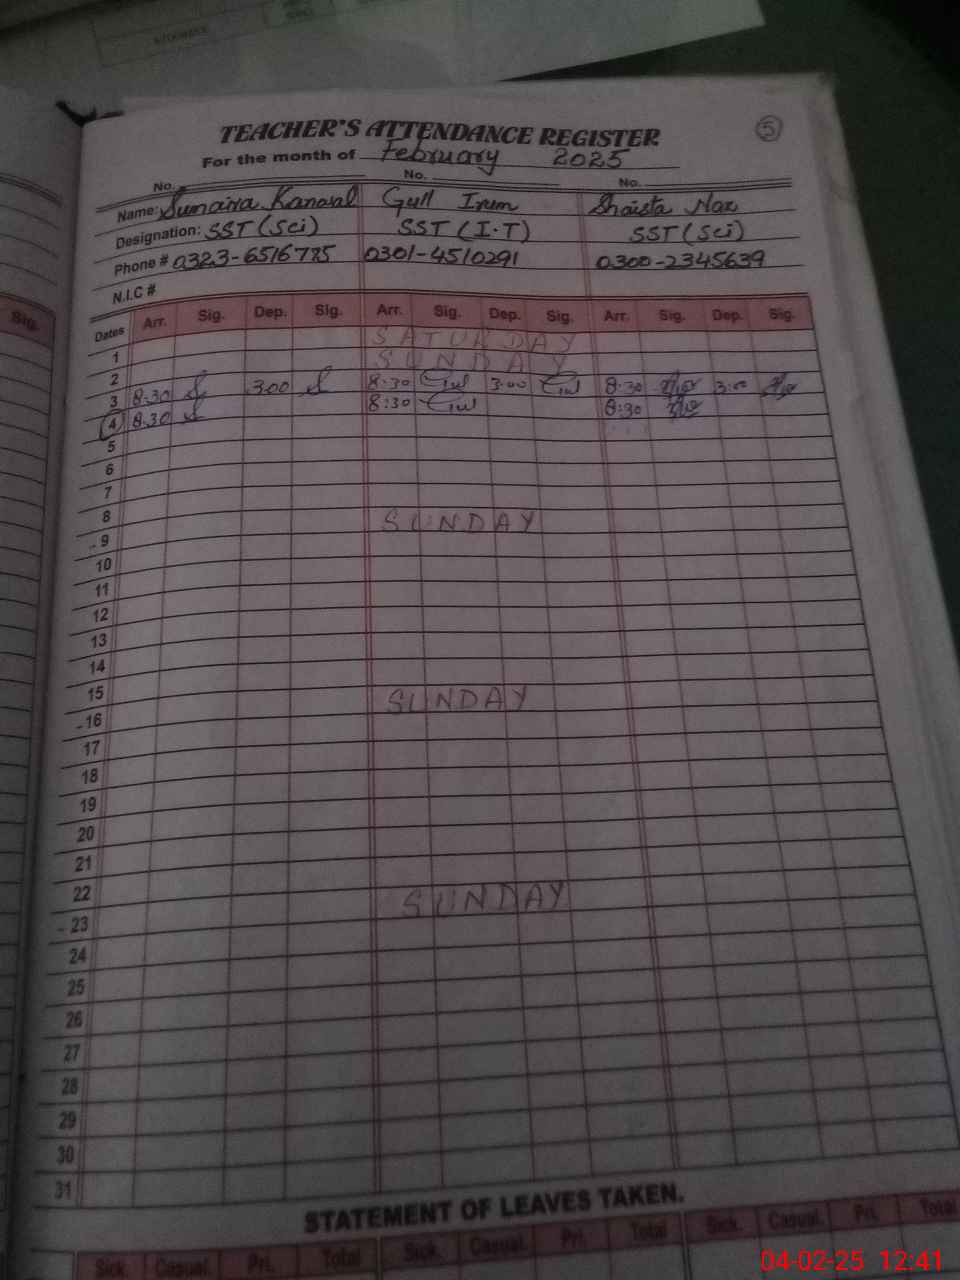 5
TEACHER'S ATTENDANCE REGISTER
For the month of February 2025
No. No. No.
Name: Sumaira Kanwal Gull Irum Shaista Naz
Designation: SST (Sci) SST (I.T) SST (Sci)
Phone # 0323-6516775 0301-4510291 0300-2345639
N.I.C #
Sig.
Dates Arr. Sig. Dep. Sig. Arr. Sig. Dep. Sig. Arr. Sig. Dep. Sig.
1 SATURDAY
2 SUNDAY
3 8.30 3.00 8.30 Gul 3.00 Gul 8.30 3:00
4 8.30 8:30 Gul 8:30
5
6
7
8
9 SUNDAY
10
11
12
13
14
15
16 SUNDAY
17
18
19
20
21
22
23 SUNDAY
24
25
26
27
28
29
30
31
STATEMENT OF LEAVES TAKEN.
Sick. Casual. Pri. Total Sick. Casual. Pri. Total Sick. Casual. Pri. Total
04-02-25 12:41